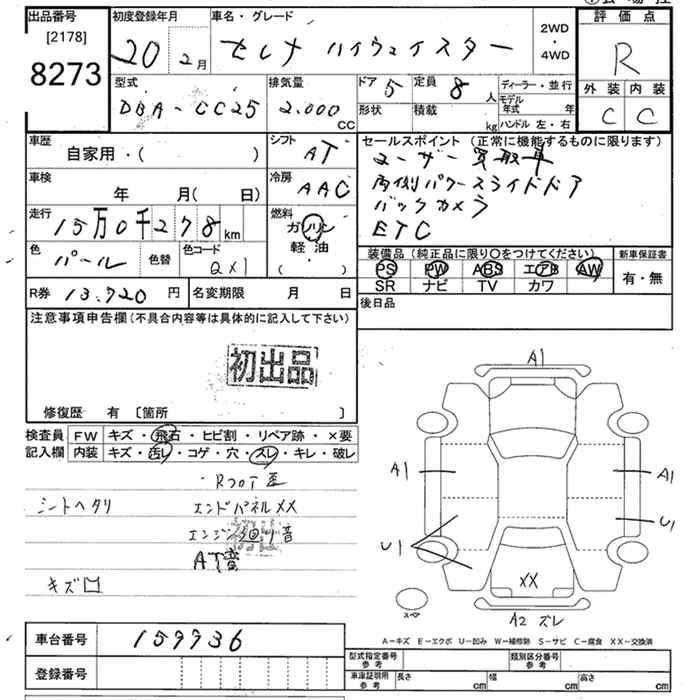 出品番号
[2178]
8273
初度登録年月
20 2月
車名・グレード
セレナ ハイウェイスター
2WD
・
4WD
評価点
R
外装 内装
C C
型式
DBA-CC25
排気量
2.000
CC
ドア 5
定員 8 人
ディーラー・並行
形状
積載
kg
モデル年式 年
ハンドル 左・右
車歴
自家用・( )
シフト
AT
セールスポイント (正常に機能するものに限ります)
ユーザー買取車
両側パワースライドドア
バックカメラ
ETC
車検
年 月( 日)
冷房
AAC
走行
15万0千278km
燃料
ガソリン
軽油
( ・ )
色
パール
色替
色コード
QX1
装備品 (純正品に限り○をつけてください)
新車保証書
PS PW ABS エアB AW
SR ナビ TV カワ
有・無
R券 13.720円
名変期限 月 日
後日品
注意事項申告欄(不具合内容等は具体的に記入して下さい)
初出品
修復歴 有 〔箇所 〕
検査員
記入欄
FW キズ・飛石・ヒビ割・リペア跡・×要
内装 キズ・汚レ・コゲ・穴・スレ・キレ・破レ
シートヘタリ
エンドパネルXX
AT音
キズ
A1
A1
A1
U1
U1
XX
A2 ズレ
スペア
A-キズ E-エクボ U-凹み W-補修跡 S-サビ C-腐食 XX-交換済
車台番号 159936
登録番号
型式指定番号
参考
類別区分番号
参考
車庫証明用
参考
長さ cm
幅 cm
高さ cm